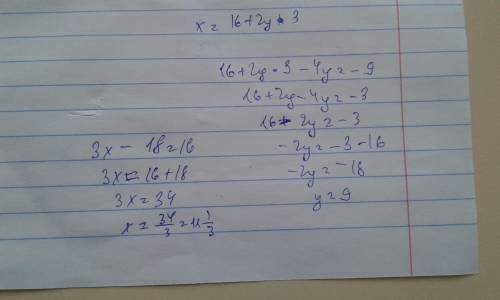 x = 16+2y : 3
16+2y · 3 - 4y = -9
16+2y - 4y = -3
16 - 2y = -3
-2y = -3 - 16
-2y = -18
y = 9
3x - 18 = 16
3x = 16 + 18
3x = 34
x = 34/3 = 11 1/3